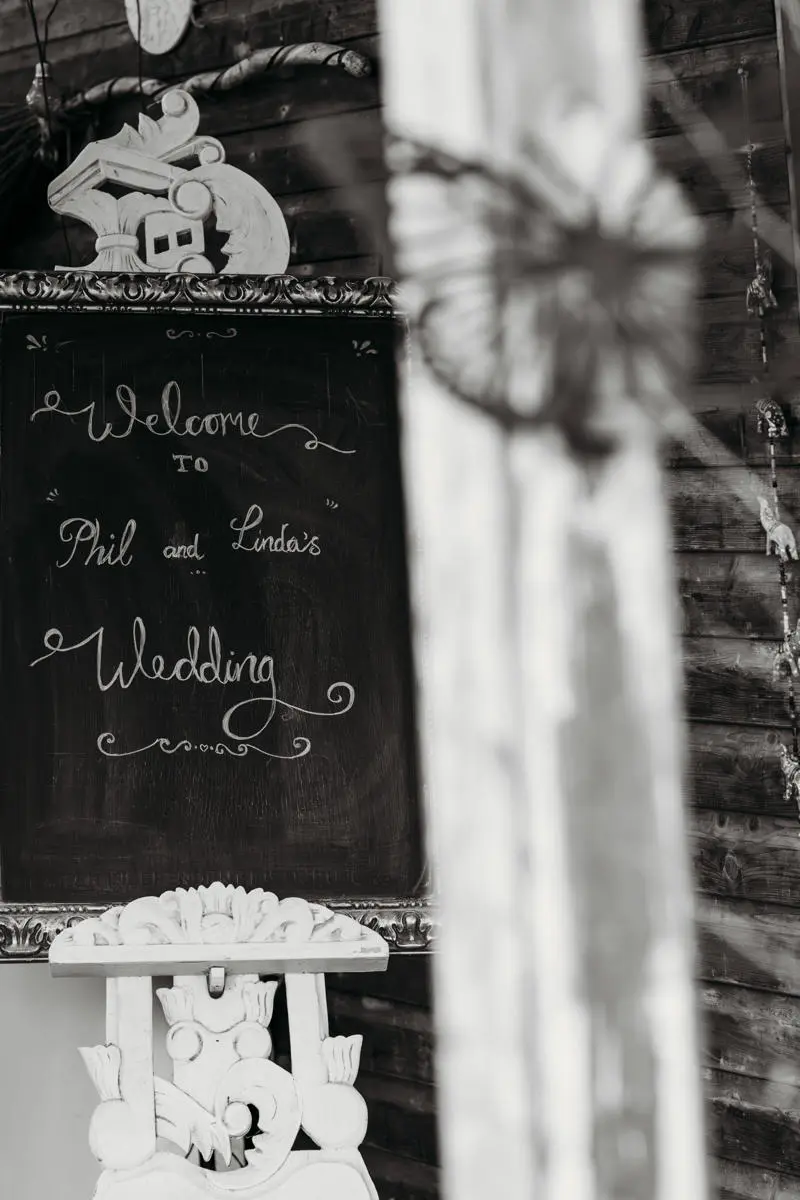 Welcome
TO
Phil and Linda's
Wedding